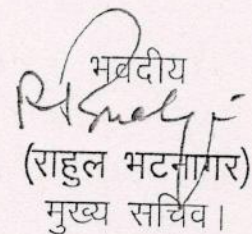 भवदीय
(राहुल भटनागर)
मुख्य सचिव।